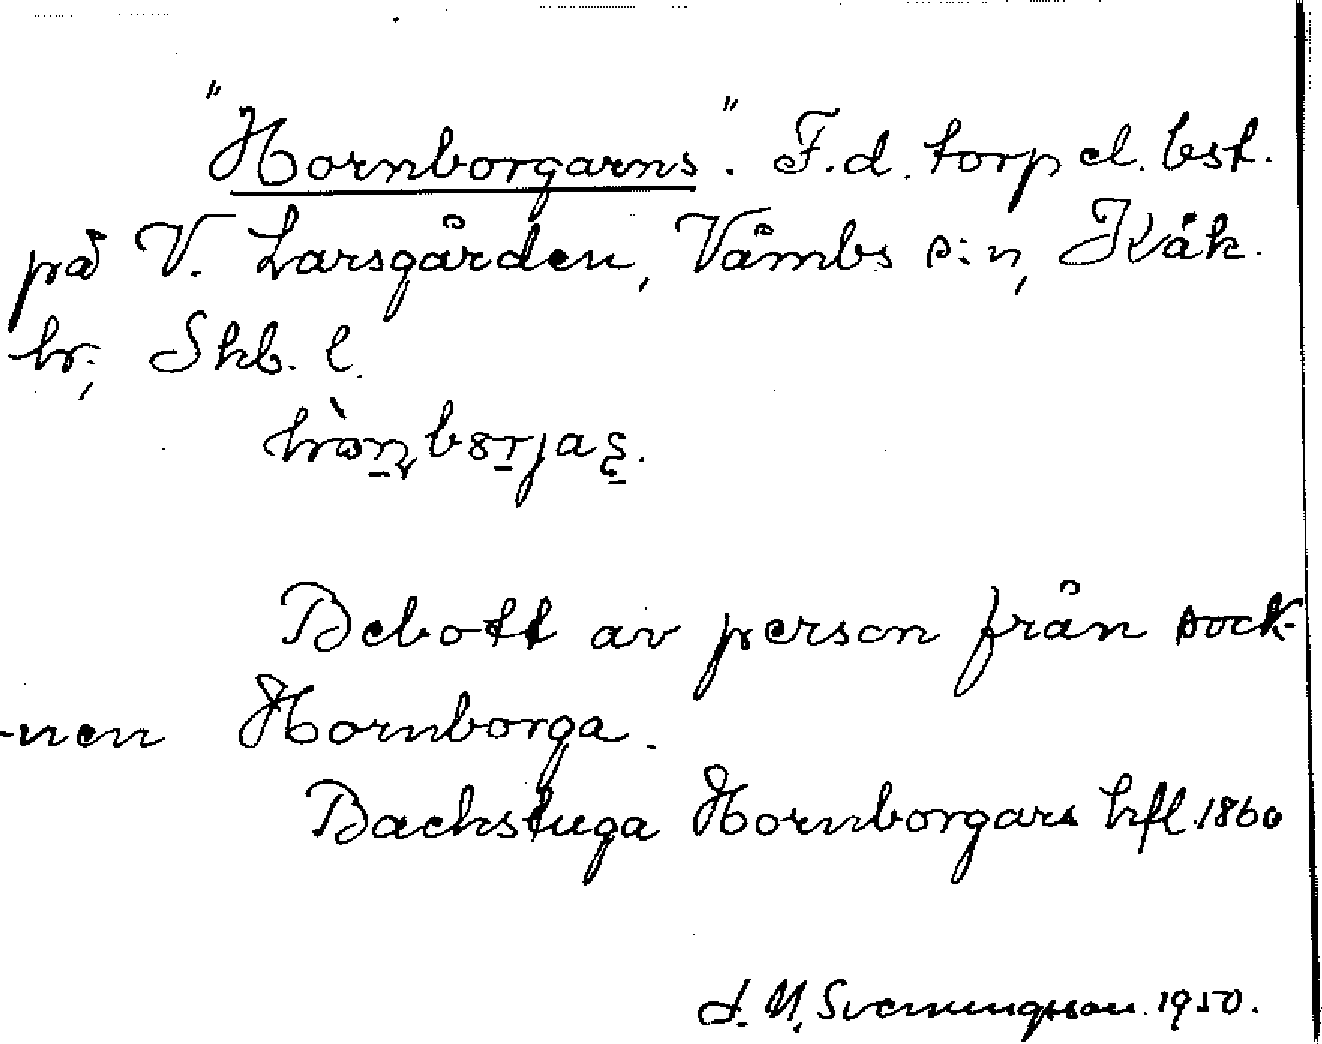 "Hornborgarns". F.d. torp el. bst.
på V. Larsgården, Våmbs s:n, Kåk.
hr, Skb. l.
Bebott av person från sock-
-nen Hornborga.
Backstuga Hornborgars hfl 1860
Sveningsson. 1950.